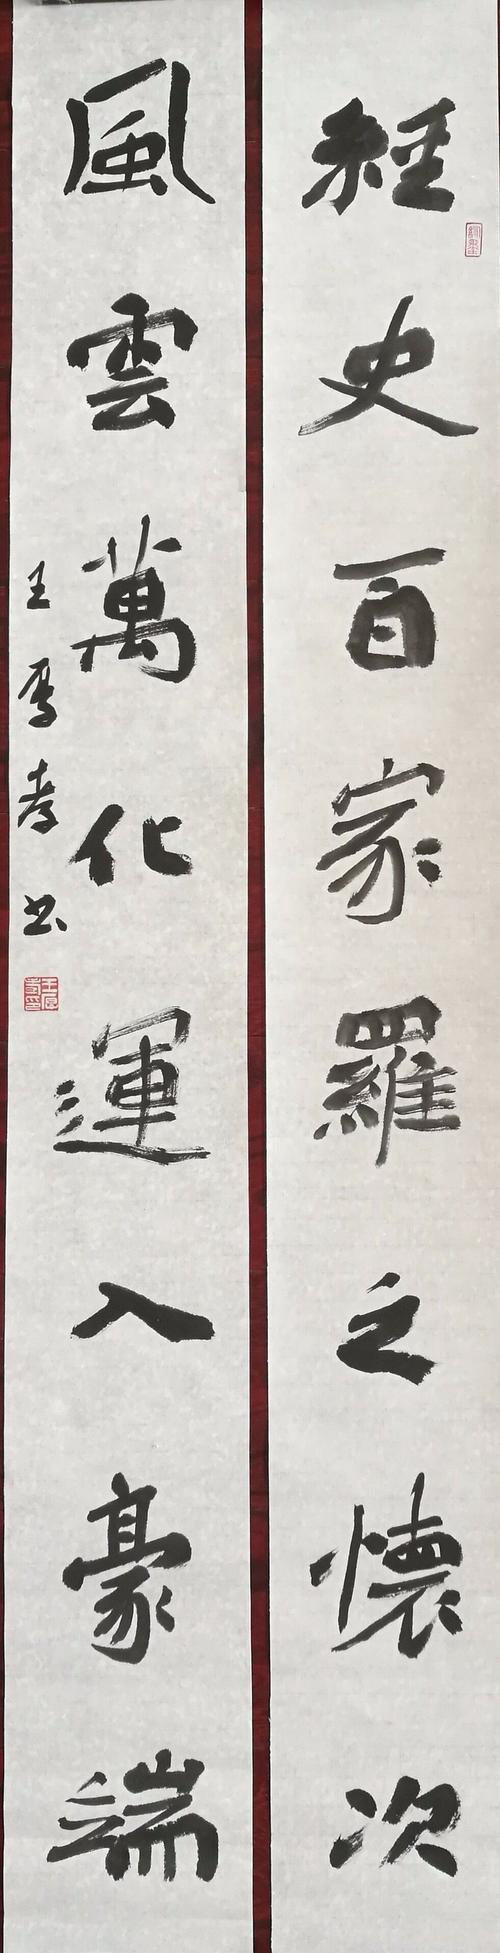 經史百家羅之懷次
風雲萬化運入豪端
王厚孝書